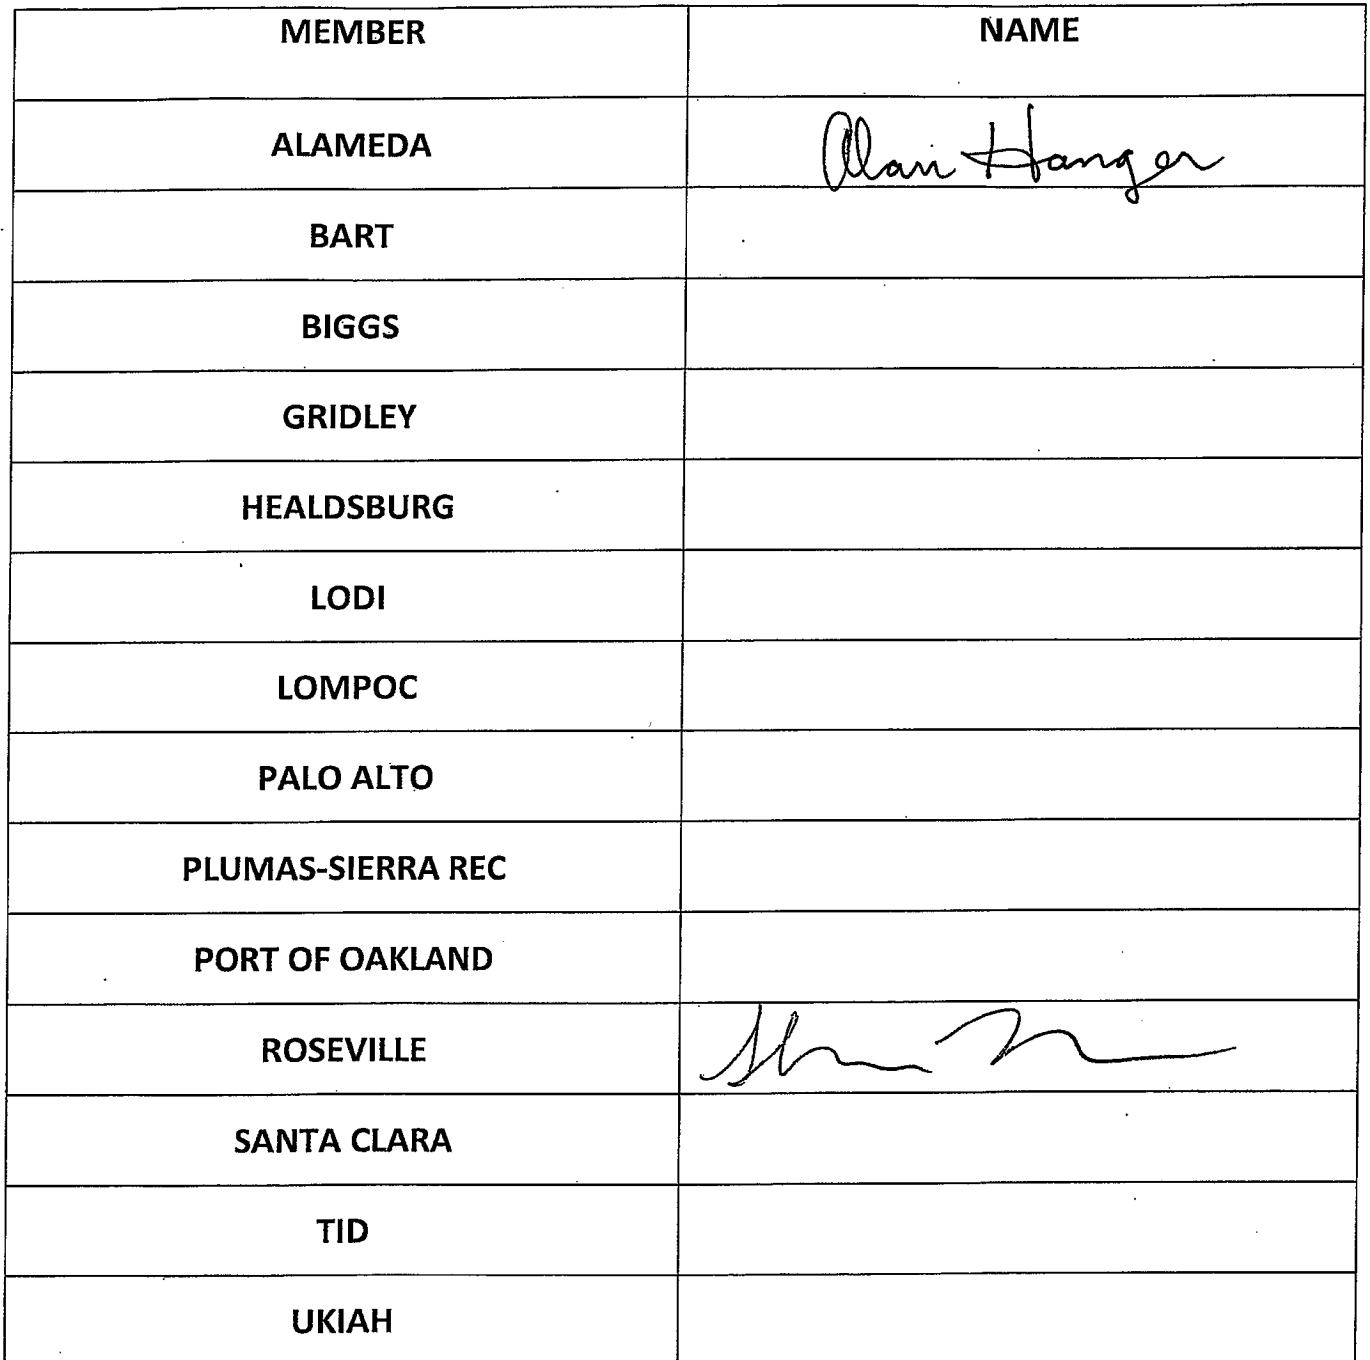 MEMBER NAME
ALAMEDA Alan Hanger
BART
BIGGS
GRIDLEY
HEALDSBURG
LODI
LOMPOC
PALO ALTO
PLUMAS-SIERRA REC
PORT OF OAKLAND
ROSEVILLE
SANTA CLARA
TID
UKIAH